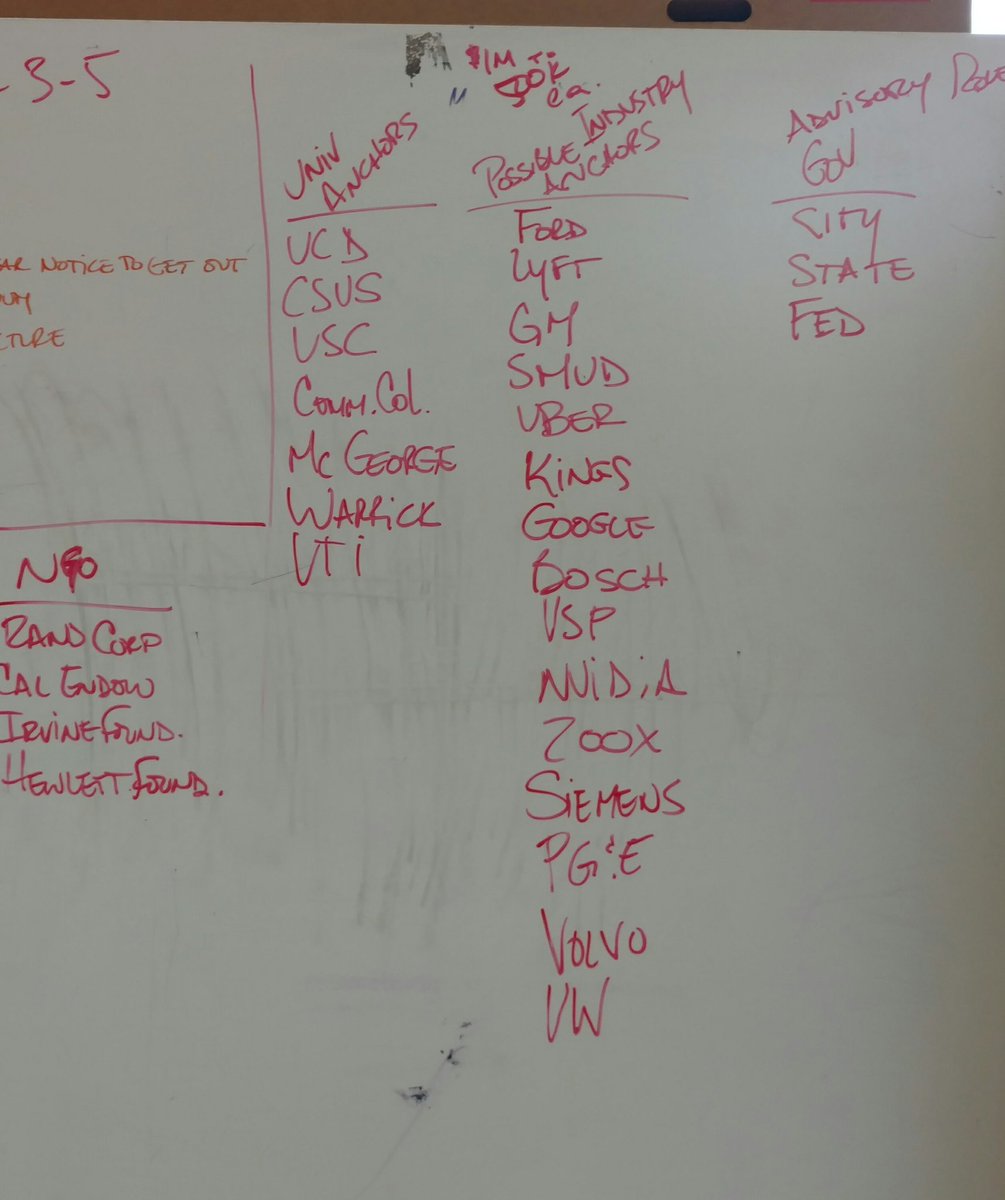 - 3-5
NOTICE TO GET OUT
NGO
RAND CORP
CAL ENDOW
IRVINE FOUND.
HEWLETT FOUND.
UNIV
ANCHORS
UCD
CSUS
USC
COMM. COL.
MC GEORGE
WARRICK
VTI
$1M
500K
ea.
POSSIBLE INDUSTRY
ANCHORS
FORD
LYFT
GM
SMUD
UBER
KINGS
GOOGLE
BOSCH
VSP
NVIDIA
ZOOX
SIEMENS
PG&E
VOLVO
VW
ADVISORY ROLE
GOV
CITY
STATE
FED